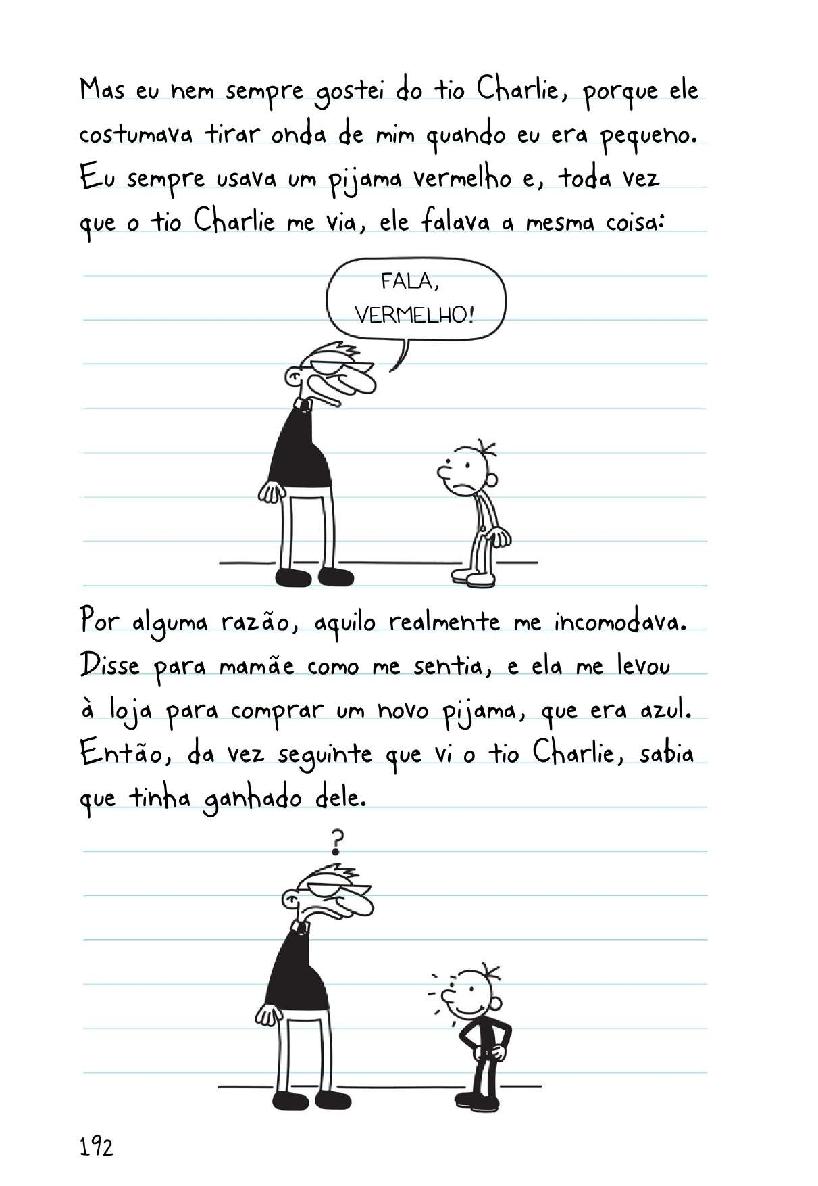 Mas eu nem sempre gostei do tio Charlie, porque ele
costumava tirar onda de mim quando eu era pequeno.
Eu sempre usava um pijama vermelho e, toda vez
que o tio Charlie me via, ele falava a mesma coisa:
FALA,
VERMELHO!
Por alguma razão, aquilo realmente me incomodava.
Disse para mamãe como me sentia, e ela me levou
à loja para comprar um novo pijama, que era azul.
Então, da vez seguinte que vi o tio Charlie, sabia
que tinha ganhado dele.
?
192